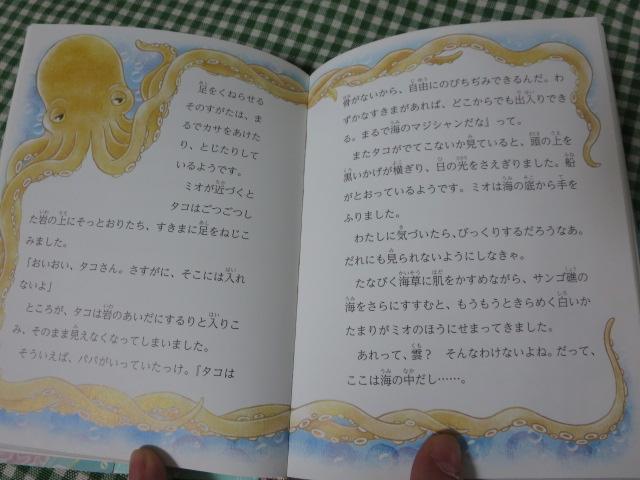 足をくねらせる
そのすがたは、ま
るでカサをあけた
り、とじたりして
いるようです。
ミオが近づくと
タコはごつごつし
た岩の上にそっとおりたち、すきまに足をねじこ
みました。
「おいおい、タコさん。さすがに、そこには入れ
ないよ」
ところが、タコは岩のあいだにするりと入りこ
み、そのまま見えなくなってしまいました。
そういえば、パパがいっていたっけ。『タコは
骨がないから、自由にのびちぢみできるんだ。わ
ずかなすきまがあれば、どこからでも出入りでき
る。まるで海のマジシャンだな』って。
またタコがでてこないか見ていると、頭の上を
黒いかげが横ぎり、日の光をさえぎりました。船
がとおっているようです。ミオは海の底から手を
ふりました。
わたしに気づいたら、びっくりするだろうなあ。
だれにも見られないようにしなきゃ。
たなびく海草に肌をかすめながら、サンゴ礁の
海をさらにすすむと、もうもうときらめく白いか
たまりがミオのほうにせまってきました。
あれって、雲？　そんなわけないよね。だって、
ここは海の中だし……。